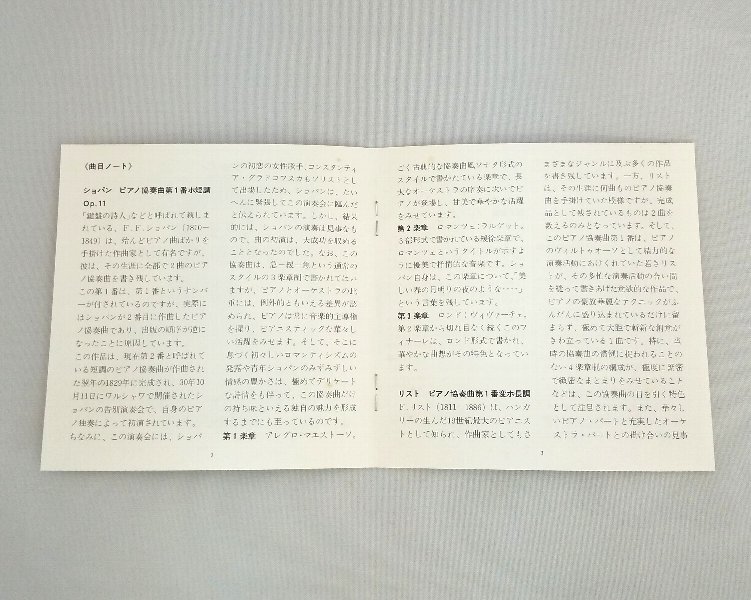 〈曲目ノート〉
ショパン ピアノ協奏曲第1番ホ短調
Op.11
「鍵盤の詩人」などと呼ばれて親しま
れている、F.F.ショパン（1810—
1849）は、殆んどピアノ曲ばかりを
手掛けた作曲家として有名ですが、
彼は、その生涯に全部で2曲のピア
ノ協奏曲を書き残しています。
この第1番は、第1番というナンバ
ーが付されているのですが、実際に
はショパンが2番目に作曲したピア
ノ協奏曲であり、出版の順序が逆に
なったことに原因しています。
この作品は、現在第2番と呼ばれて
いる短調のピアノ協奏曲が作曲され
た翌年の1829年に完成され、30年10
月11日にワルシャワで開催されたシ
ョパンの告別演奏会で、自身のピア
ノ独奏によって初演されています。
ちなみに、この演奏会には、ショパ
ンの初恋の女性歌手、コンスタンティ
ア・グラドコフスカもソリストとし
て出場したため、ショパンは、たい
へんに緊張してこの演奏会に臨んだ
と伝えられています。しかし、結果
的には、ショパンの演奏は見事なも
ので、曲の初演は、大成功を収める
こととなったのでした。なお、この
協奏曲は、急—緩—急という通常の
スタイルの3楽章制で書かれてはい
ますが、ピアノとオーケストラの比
重には、例外的ともいえる差異が認
められ、ピアノは常に音楽的主導権
を握り、ピアニスティックな華々し
い活躍をみせます。そして、そこに
息づく初々しいロマンティシズムの
発露や青年ショパンのみずみずしい
情感の豊かさは、極めてデリケート
な詩情をも伴って、この協奏曲だけ
の持ち味といえる独自の魅力を形成
するまでにも至っているのです。
第1楽章 アレグロ・マエストーソ。
2
ごく古典的な協奏曲風ソナタ形式の
スタイルで書かれている楽章で、長
大なオーケストラの序奏に次いでピ
アノが登場し、甘美で華やかな活躍
をみせています。
第2楽章 ロマンツェ：ラルゲット。
3部形式で書かれている緩徐楽章で、
ロマンツェというタイトルが示すよ
うに優美で抒情的な音楽です。ショ
パン自身は、この楽章について、「美
しい春の月明りの夜のような……」
という言葉を残しています。
ロンド：ヴィヴァーチェ。
第2楽章から切れ目なく続くこのフ
ィナーレは、ロンド形式で書かれ、
華やかな曲想がその特色となってい
ます。
リスト ピアノ協奏曲第1番変ホ長調
F.リスト（1811—1886）は、ハンガ
リーの生んだ19世紀最大のピアニス
トとして知られ、作曲家としてもさ
まざまなジャンルに及ぶ多くの作品
を書き残しています。一方、リスト
は、その生涯に何曲ものピアノ協奏
曲を手掛けていた模様ですが、完成
品として残されているものは2曲を
数えるのみとなっています。そして、
このピアノ協奏曲第1番は、ピアノ
のヴィルトゥオーソとして精力的な
演奏活動にあけくれていた若きリス
トが、その多忙な演奏活動の合い間
を縫って書きあげた意欲的な作品で、
ピアノの豪放華麗なテクニックがふ
んだんに盛り込まれているだけに留
まらず、極めて大胆で斬新な創意が
きわ立っている1曲です。特に、当
時の協奏曲の慣例に捉われることの
ない4楽章制の構成が、極度に緊密
で緻密なまとまりをみせていること
などは、この協奏曲の目を引く特色
として注目されます。また、華々し
いピアノ・パートと充実したオーケ
ストラ・パートとの掛け合いの見事
3